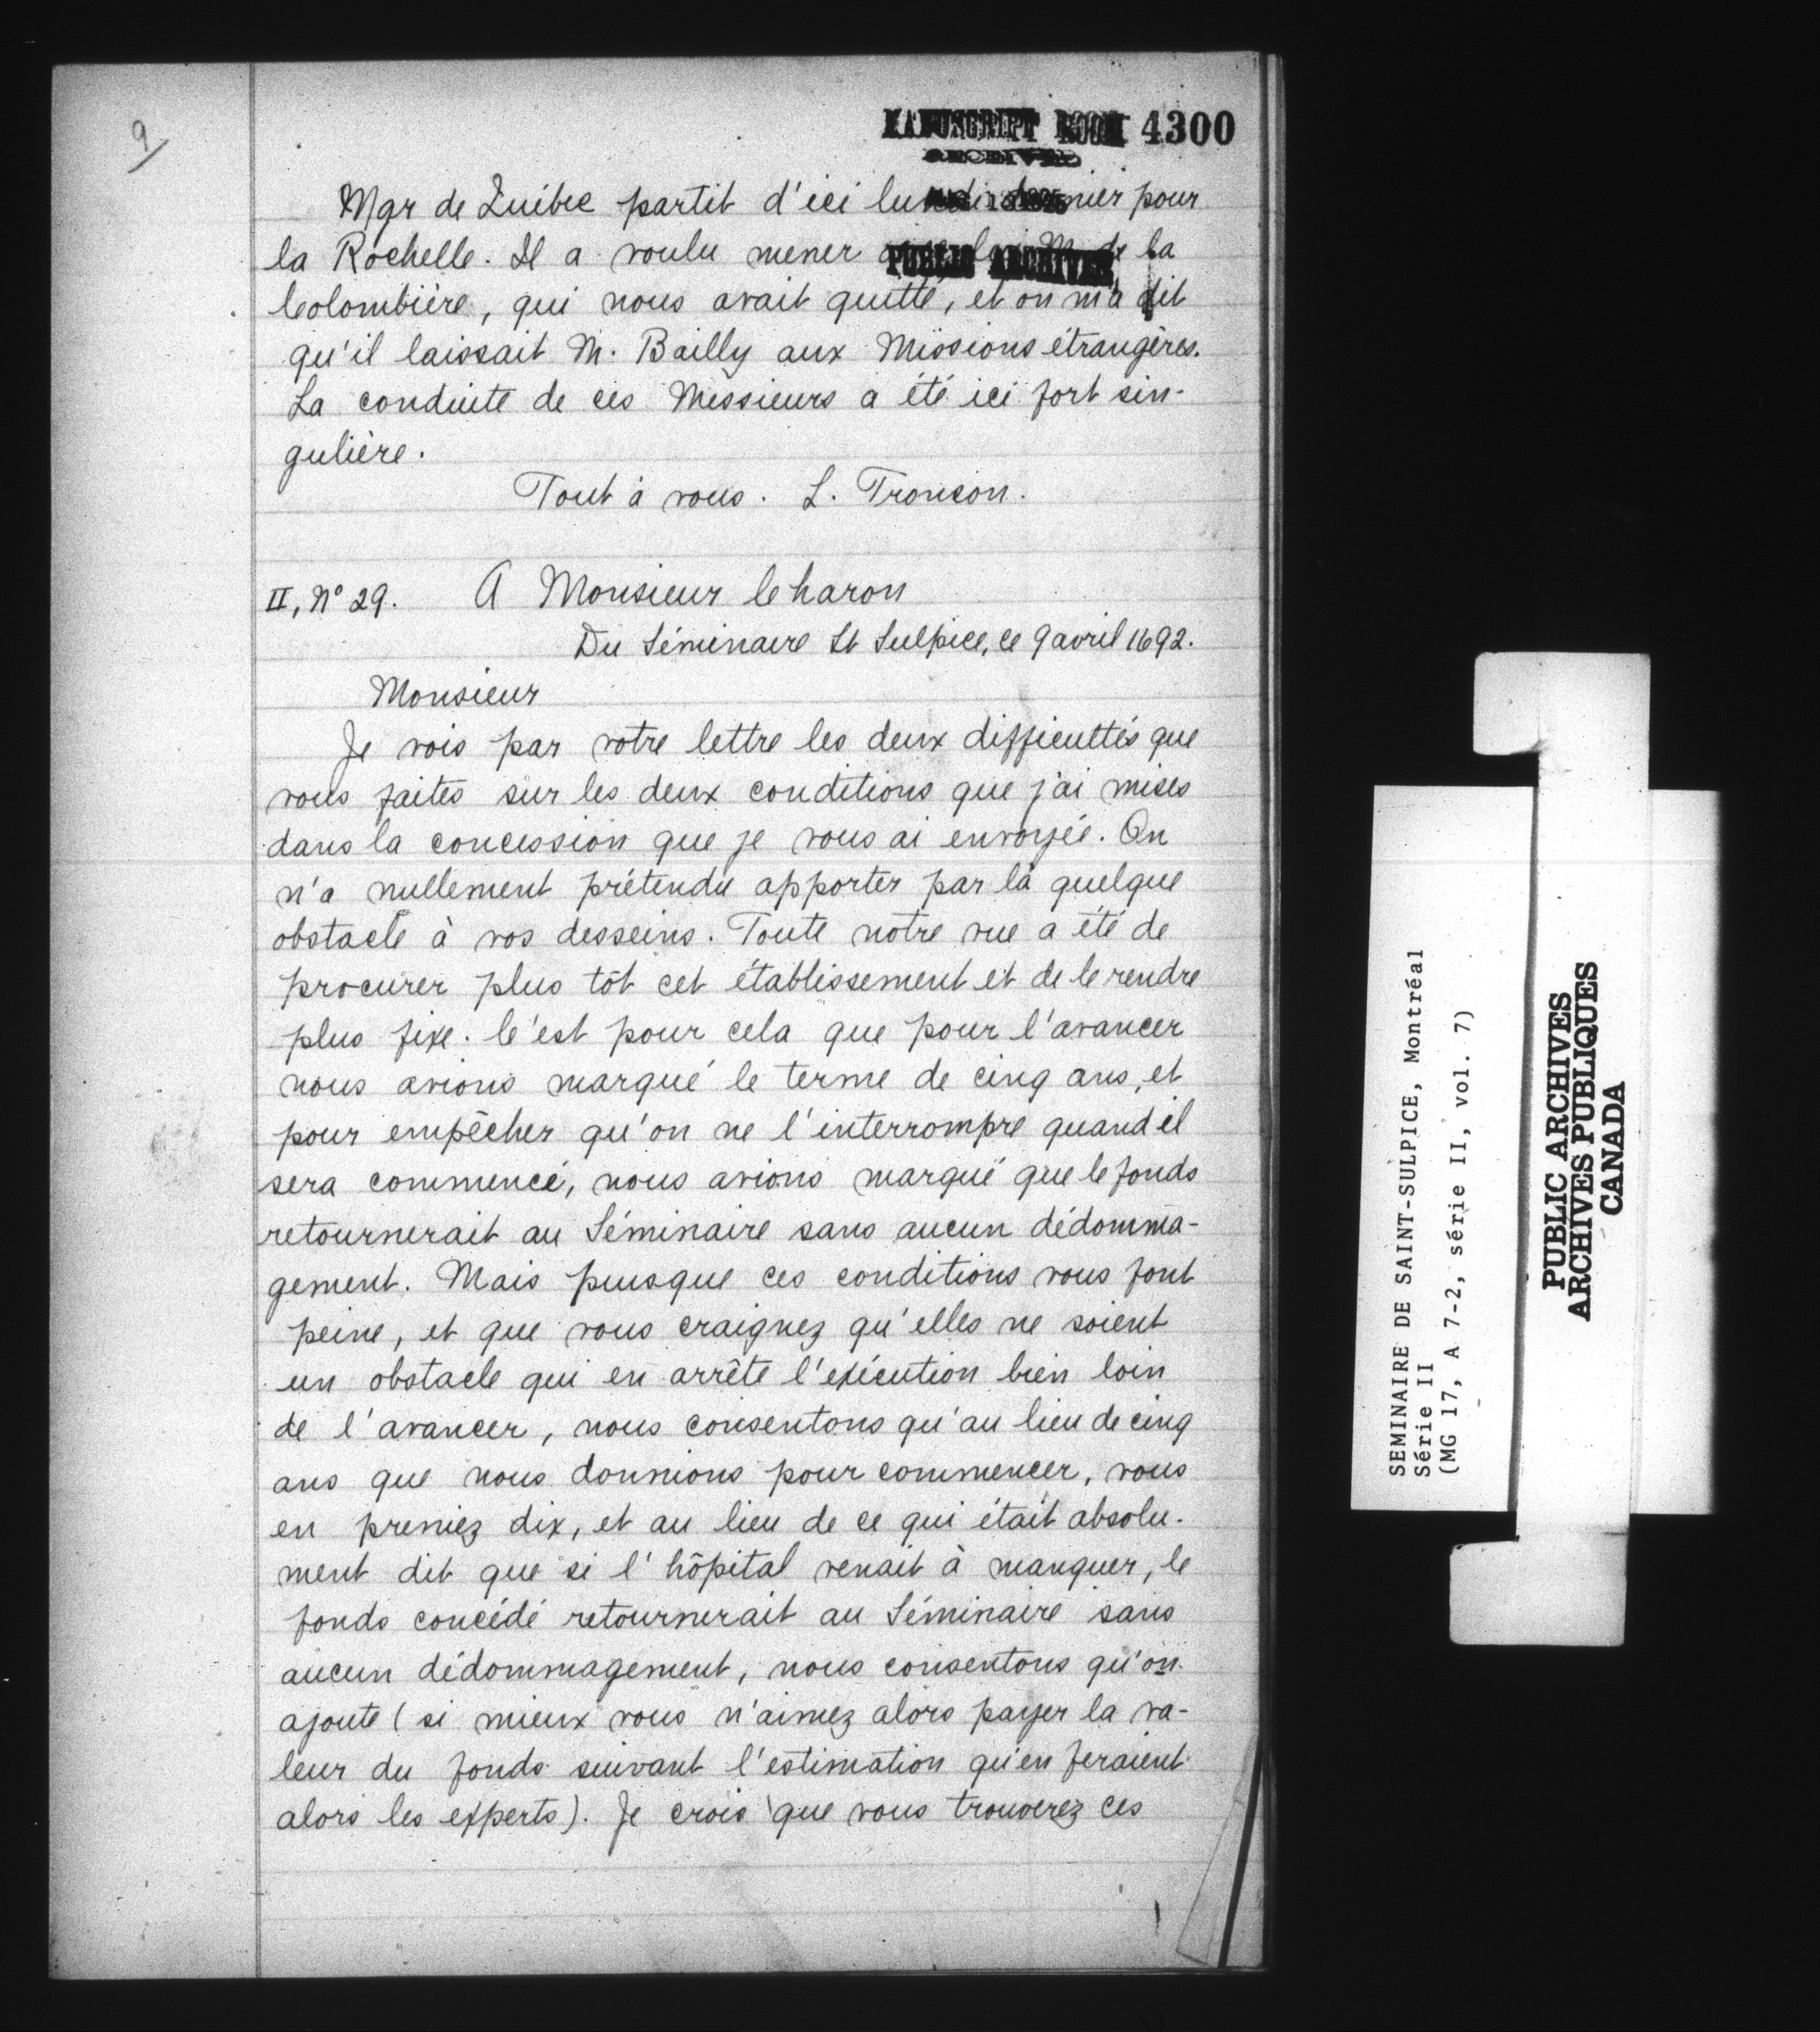 9
MANUSCRIPT ROOM 4300
RECEIVED
PUBLIC ARCHIVES
Mgr de Québec partit d'ici lundi dernier pour
la Rochelle. Il a voulu mener avec lui M. de la
Colombière, qui nous avait quitté, et on m'a dit
qu'il laissait M. Bailly aux Missions étrangères.
La conduite de ces Messieurs a été ici fort sin-
gulière.
Tout à vous. L. Tronson.
II, No 29. A Monsieur Charon
Du Séminaire St Sulpice, ce 9 avril 1692.
Monsieur
Je vois par votre lettre les deux difficultés que
vous faites sur les deux conditions que j'ai mises
dans la concession que je vous ai envoyée. On
n'a nullement prétendu apporter par là quelque
obstacle à vos desseins. Toute notre vue a été de
procurer plus tôt cet établissement et de le rendre
plus fixe. C'est pour cela que pour l'avancer
nous avions marqué le terme de cinq ans, et
pour empêcher qu'on ne l'interrompre quand il
sera commencé, nous avions marqué que le fonds
retournerait au Séminaire sans aucun dédomma-
gement. Mais puisque ces conditions vous font
peine, et que vous craignez qu'elles ne soient
un obstacle qui en arrête l'exécution bien loin
de l'avancer, nous consentons qu'au lieu de cinq
ans que nous donnions pour commencer, vous
en preniez dix, et au lieu de ce qui était absolu-
ment dit que si l'hôpital venait à manquer, le
fonds concédé retournerait au Séminaire sans
aucun dédommagement, nous consentons qu'on
ajoute (si mieux vous n'aimez alors payer la va-
leur du fonds suivant l'estimation qu'en feraient
alors les experts). Je crois que vous trouverez ces
SEMINAIRE DE SAINT-SULPICE, Montréal
Série II
(MG 17, A 7-2, série II, vol. 7)
PUBLIC ARCHIVES
ARCHIVES PUBLIQUES
CANADA